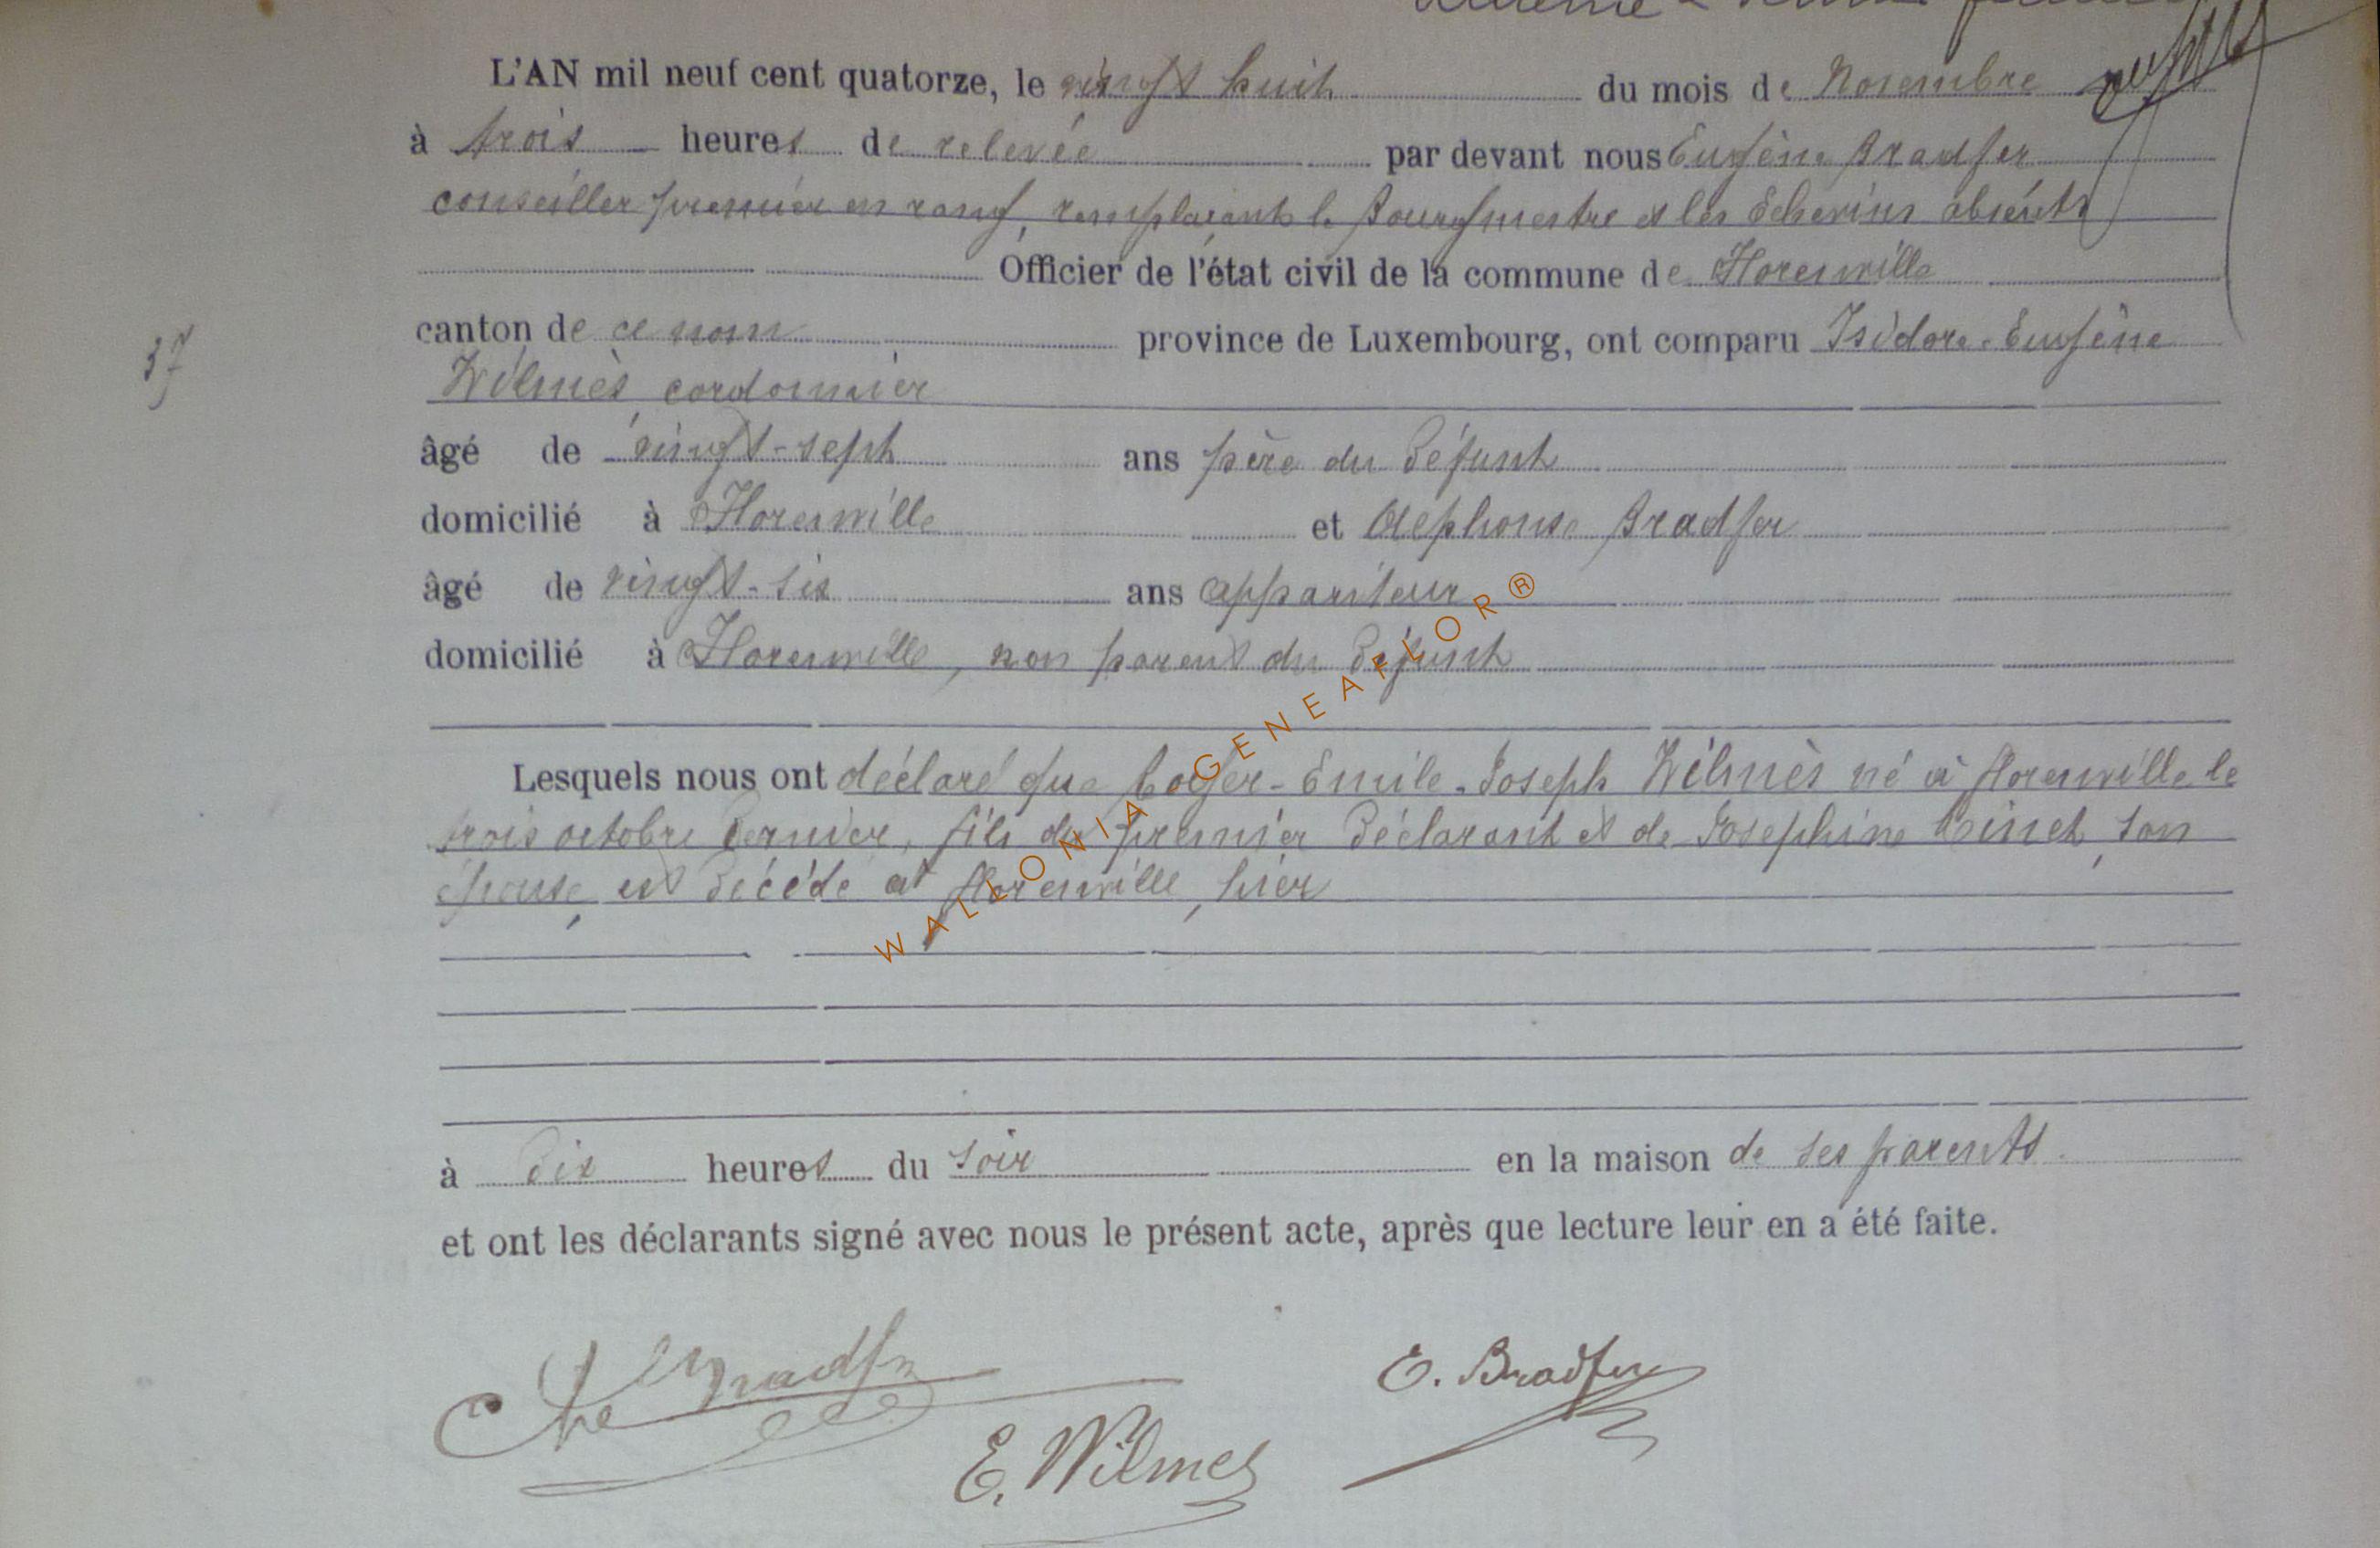 37
L'AN mil neuf cent quatorze, le vingt huit du mois de Novembre
à trois heures de relevée par devant nous Eugène Bradfer
conseiller premier en rang, remplaçant le Bourgmestre et les Echevins absents
Officier de l'état civil de la commune de Florenville
canton de ce nom province de Luxembourg, ont comparu Isidore-Eugène
Wilmès cordonnier
âgé de vingt-sept ans père du défunt
domicilié à Florenville et Alphonse Bradfer
âgé de vingt-six ans appariteur
domicilié à Florenville, non parent du défunt
Lesquels nous ont déclaré que Roger-Emile-Joseph Wilmès né à Florenville le
trois octobre dernier, fils du premier déclarant et de Josephine Pinet, son
épouse, est décédé à Florenville, hier
à dix heures du soir en la maison de ses parents.
et ont les déclarants signé avec nous le présent acte, après que lecture leur en a été faite.
Bradfer
E. Bradfer
E. Wilmes
WALLONIA GENEAFLOR®